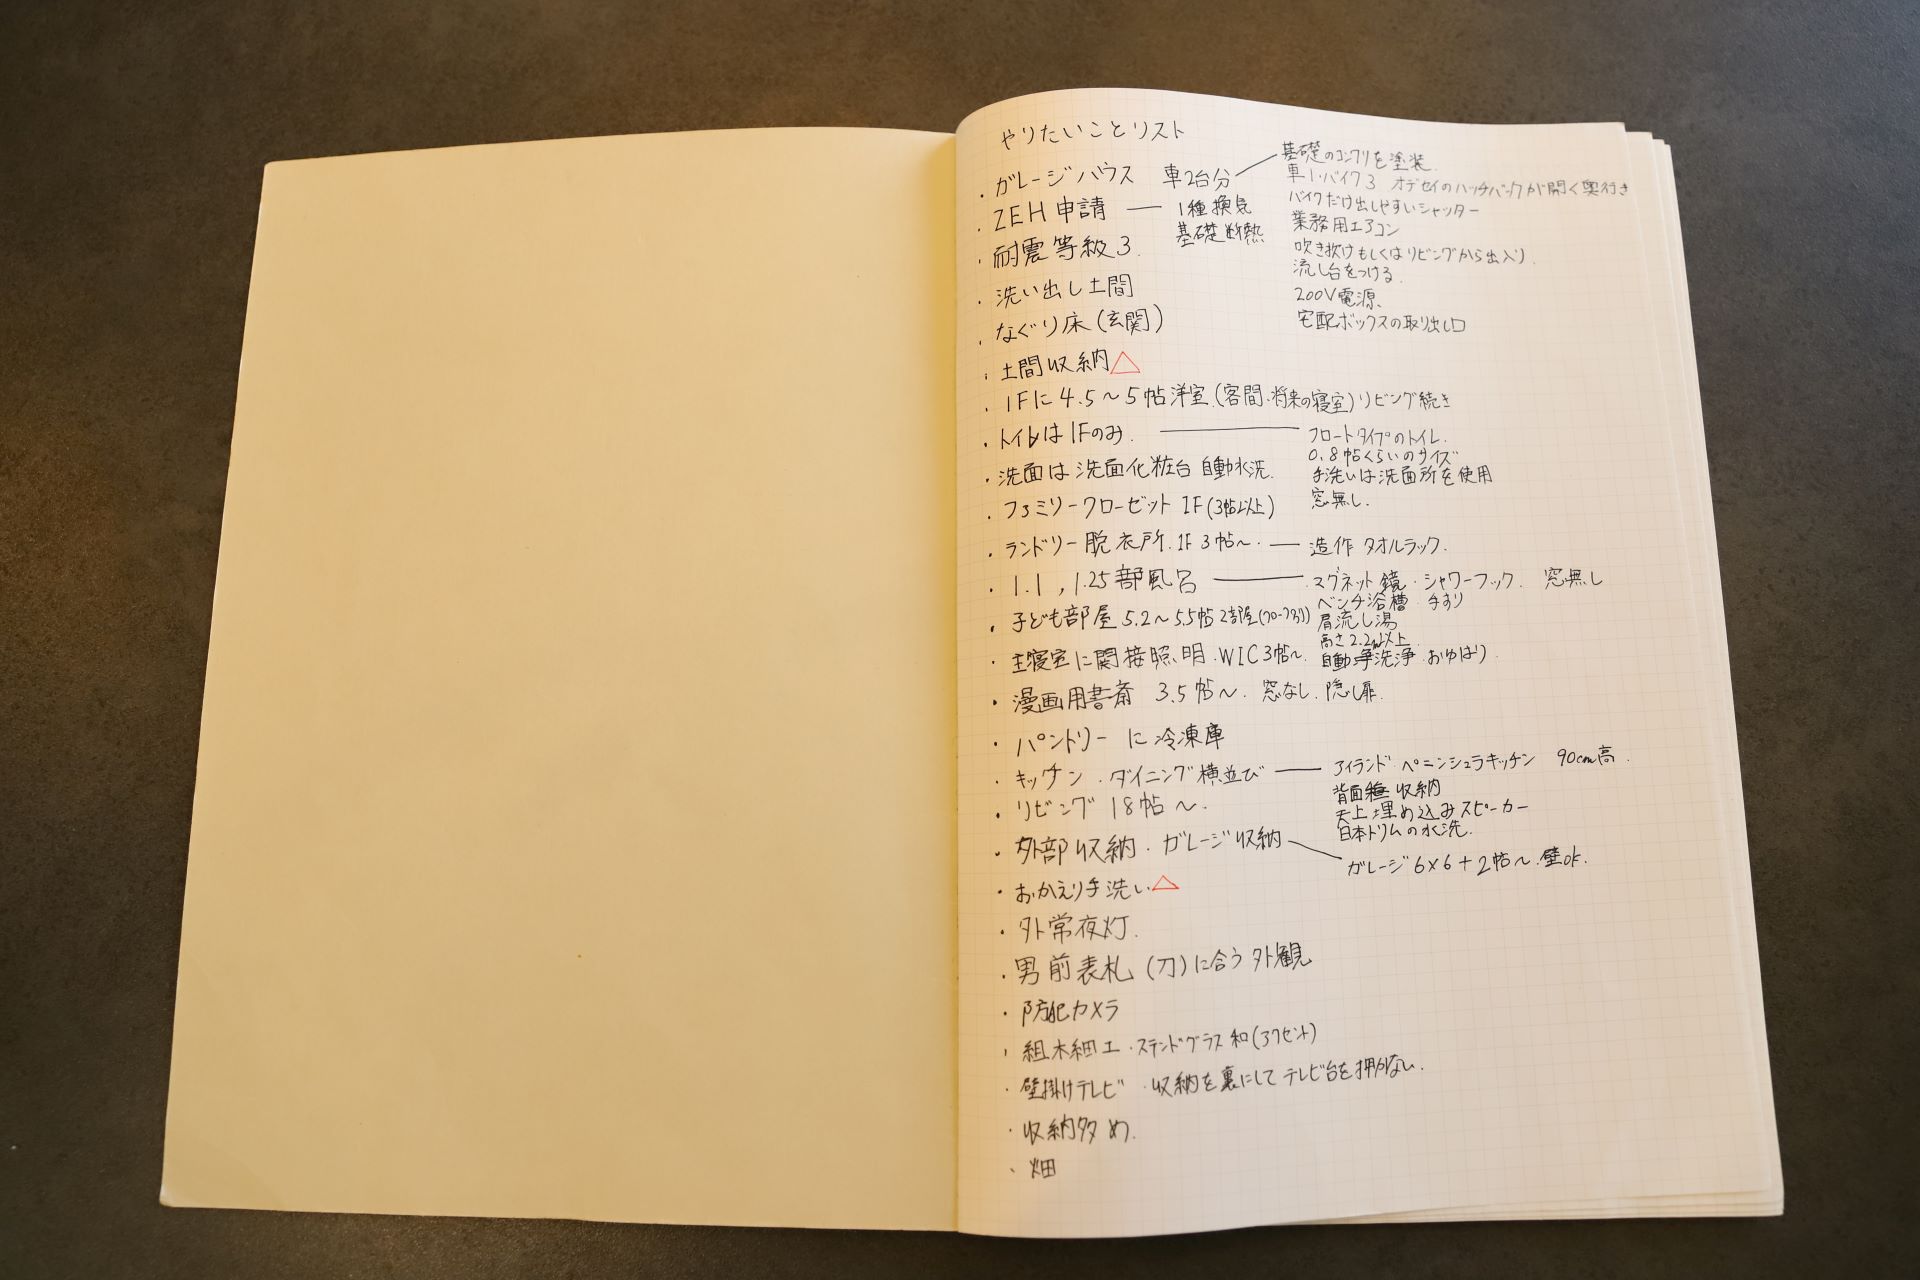 やりたいことリスト
・ガレージハウス 車2台分
基礎のコンクリを塗装
車1・バイク3 オデッセイのハッチバックが開く奥行き
バイクだけ出しやすいシャッター
業務用エアコン
吹き抜けもしくはリビングから出入り
流し台をつける
200V電源、
宅配ボックスの取り出し口
・ZEH申請 1種換気
基礎断熱
・耐震等級3
・洗い出し土間
・なぐり床(玄関)
・土間収納△
・1Fに4.5〜5帖洋室(客間・将来の寝室)リビング続き
・トイレは1Fのみ.
フロートタイプのトイレ.
0.8帖くらいのサイズ
手洗いは洗面所を使用
窓無し.
・洗面は洗面化粧台 自動水洗.
・ファミリークローゼット 1F(3帖以上)
・ランドリー脱衣所.1F 3帖〜. 造作タオルラック.
・1.1,1.25部風呂
マグネット鏡・シャワーフック. 窓無し
ベンチ浴槽・手すり
肩流し湯
高さ2.2m以上
自動洗浄・おゆはり.
・子ども部屋 5.2〜5.5帖 2部屋
・主寝室に関接照明・WIC3帖〜.
・漫画用書斎 3.5帖〜. 窓なし.隠し扉.
・パントリーに冷凍庫
・キッチン・ダイニング横並び
アイランド・ペニンシュラキッチン 90cm高.
背面 収納
天上埋め込みスピーカー
日本トリムの水洗.
・リビング 18帖〜.
・外部収納・ガレージ収納
ガレージ6×6+2帖〜.壁ok.
・おかえり手洗い△
・外常夜灯.
・男前表札(刀)に合う外観
・防犯カメラ
・組木細工・ステンドグラス 和(アクセント)
・壁掛けテレビ ・収納を裏にしてテレビ台を置かない.
・収納多め.
・畑